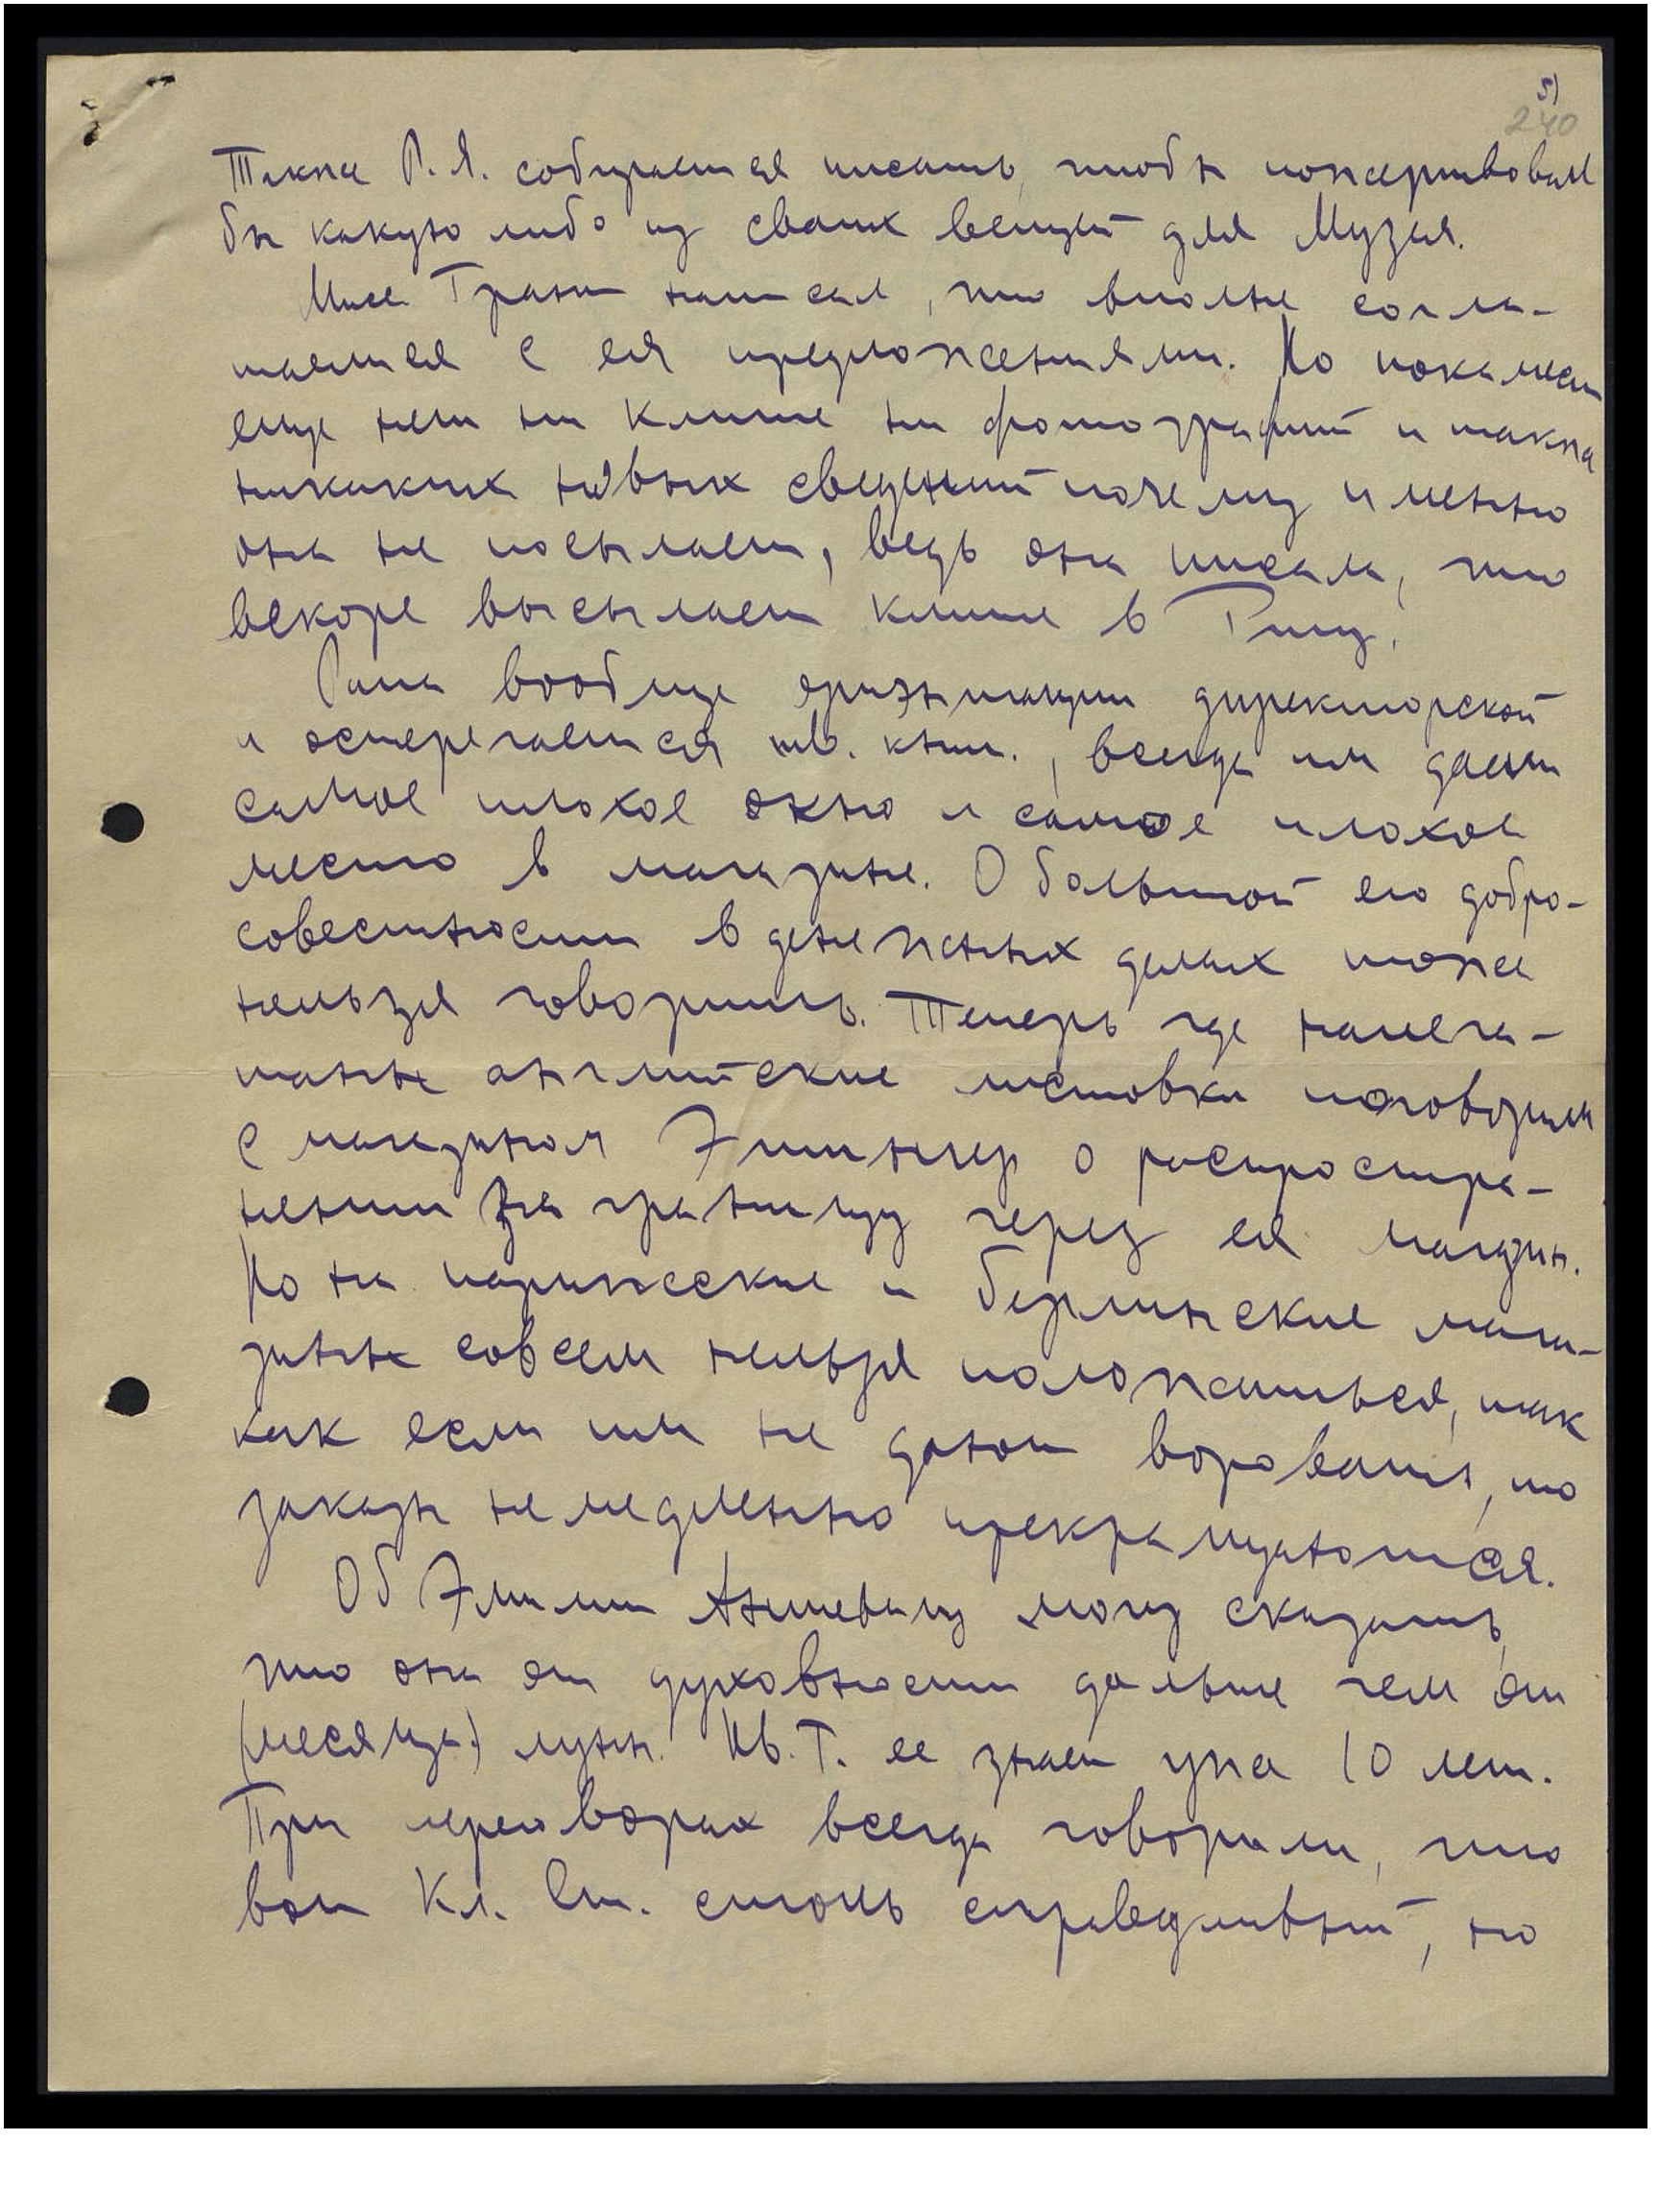 5)
240
Также Р. Я. собирается писать, чтобы пожертвовал
бы какую либо из своих вещей для Музея.
Мисс Грант написал, что вполне согла-
шаемся с ея предложениями. Но покамест
еще нет ни клише ни фотографий и также
никаких новых сведений почему именно
она не посылает, ведь она писала, что
вскоре высылает клише в Ригу.
Рапа вообще директорской
и остерегается кни., всегда им дает
самое плохое окно и самое плохое
место в магазине. О большой его добро-
совестности в денежных делах тоже
нельзя говорить. Теперь где напеча-
таны английские листовки поговорим
с магазином Эттингер о распростра-
нении за границу через ея магазин.
Но на парижские и берлинские мага-
зины совсем нельзя положиться, так
как если им не дают воровать, то
заказы немедленно прекращаются.
Об Эмилии могу сказать,
что она от духовности дальше чем от
(месяца) луны. Ив. Г. ее знает уже 10 лет.
При переговорах всегда говорили, что
вот Кл. Ст. столь справедливый, но